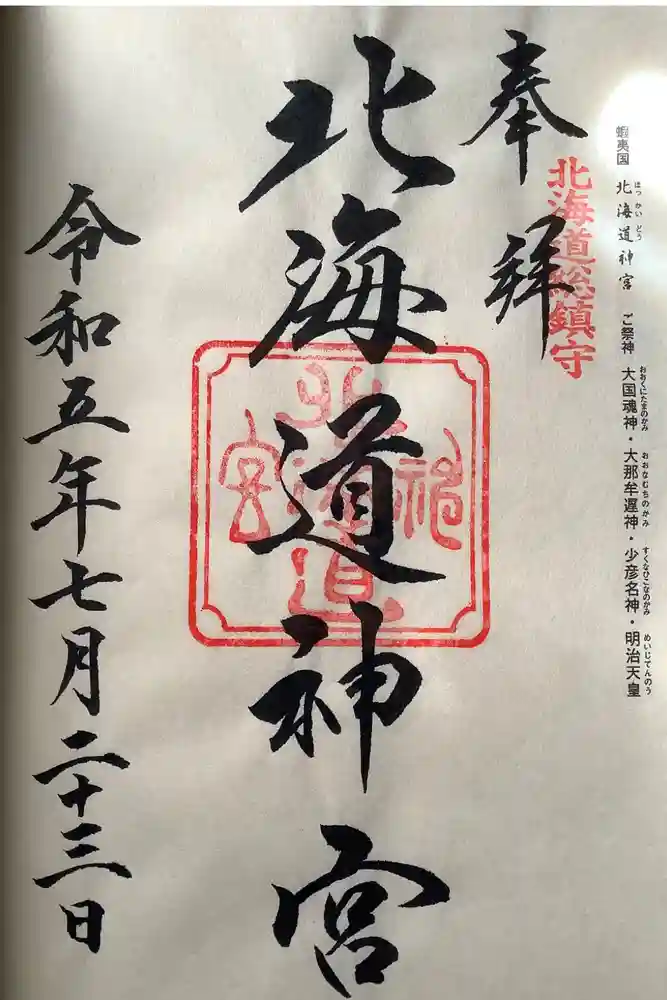 蝦夷国 北海道神宮 ご祭神 大国魂神・大那牟遅神・少彦名神・明治天皇
ほっかいどう おおくにたまのかみ おおなむちのかみ すくなひこなのかみ めいじてんのう
奉拝
北海道総鎮守
北海道神宮
北海道神宮
令和五年七月二十三日